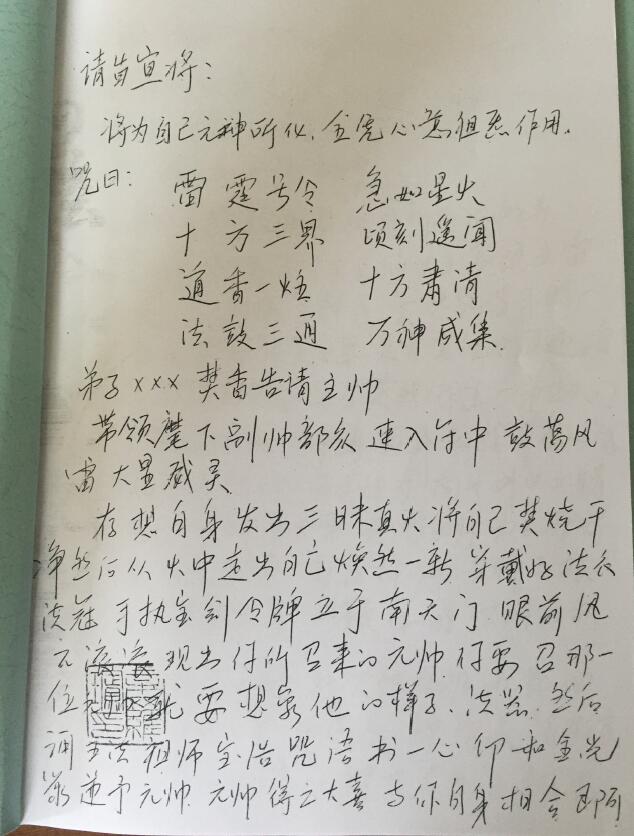 请苗宣将：
将为自己元神所化，全凭心意思作用。
咒曰：雷霆号令 急如星火
十方三界 顷刻遥闻
道香一炷 十方肃清
法鼓三通 万神咸集
弟子xxx焚香告请主帅
带领麾下副帅部众 速入符中 鼓荡风
雷大显威灵
存想自身发出三昧真火将自己焚烧干
净然后从火中走出自己焕然一新 穿戴好法衣
法冠 手执宝剑令牌立于南天门 眼前风
云滚滚 现出符所召来的元帅 符要召那一
位 就要想象他的样子、法器 然后
诵 祖师宝诰咒语书一心 和金光
递予元帅 元帅得之大喜 与你自身相合 即